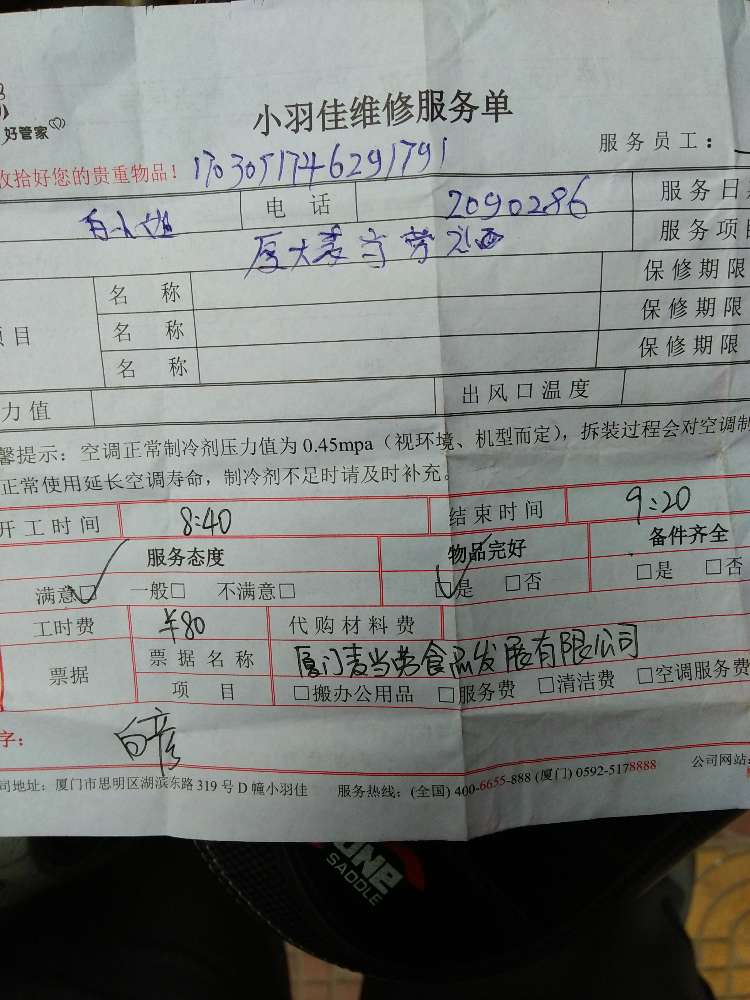 好管家
小羽佳维修服务单
服务员工：
收拾好您的贵重物品！ 1703051746291791
白小姐 电话 2090286 服务日
厦大麦当劳 服务项目
名称 保修期限
项目 名称 保修期限
名称 保修期限
力值 出风口温度
馨提示：空调正常制冷剂压力值为0.45mpa（视环境、机型而定），拆装过程会对空调制
正常使用延长空调寿命，制冷剂不足时请及时补充。
开工时间 8:40 结束时间 9:20
服务态度 物品完好 备件齐全
满意☑ 一般□ 不满意□ ☑是 □否 □是 □否
工时费 ¥80 代购材料费
票据 票据名称 厦门麦当劳食品发展有限公司
项目 □搬办公用品 □服务费 □清洁费 □空调服务费
字： 白彦
司地址：厦门市思明区湖滨东路319号D幢小羽佳 服务热线：(全国) 400-6655-888 (厦门) 0592-5178888 公司网站：
SADDLE